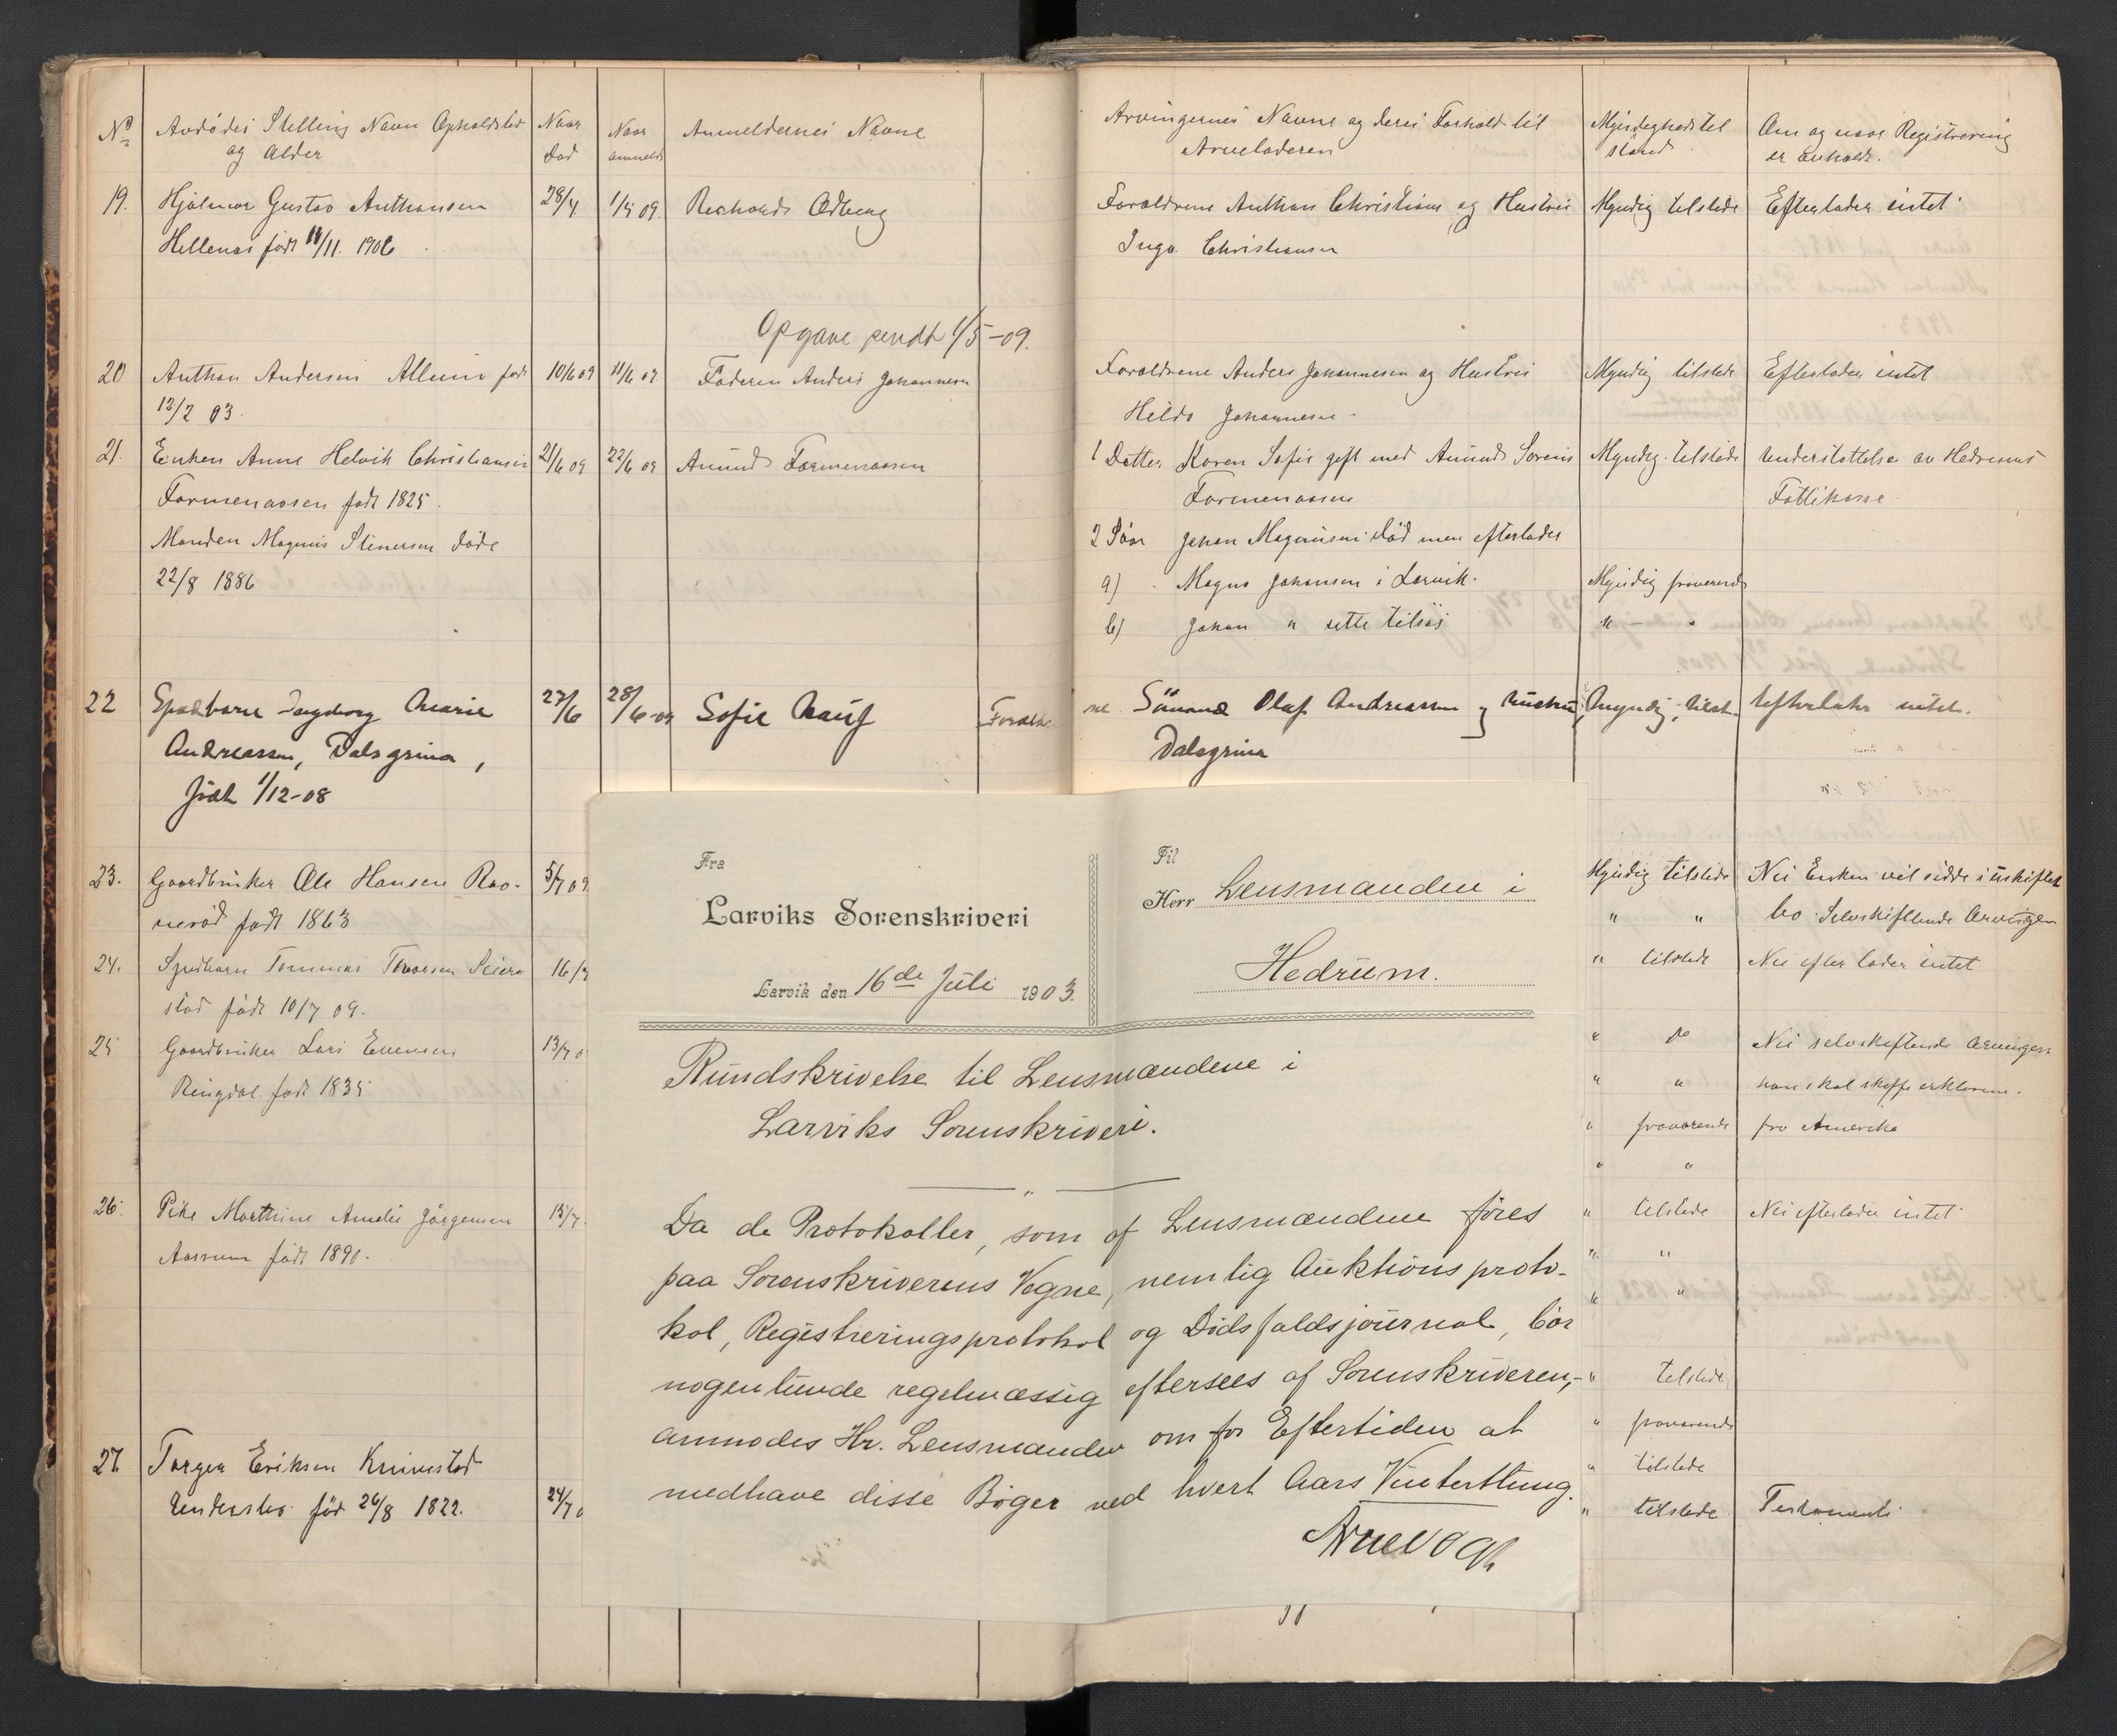 No Avdødes Stilling Navn Opholdsted og Alder
Naar død
Naar anmeldt
Anmeldernes Navne
Arvingernes Navne og deres Forhold til Arveladeren
Myndighedstilstand
Om og naar Registrering er anholdt.
19. Hjalmar Gustav Anthonsen 28/4 1/5 09. Richard Odberg Forældrene Anthon Christians og Hustru Myndig tilstede Efterlader intet
Hellenes født 11/11. 1906 Inga Christiansen
Opgave sendt 1/5-09.
20 Anthon Andersen født 10/6 09 11/6 09 Faderen Anders Johannesen Forældrene Anders Johannesen og Hustru Myndig tilstede Efterlader intet
13/2 03. Hilda Johannesen
21. Enken Anne Helvik Christiansen 21/6 09 22/6 09 Amund Farmenaasen 1 Datter Karen Sofie gift med Amund Sørens Myndig tilstede Understøttelse av Hedrums
Farmenaasen født 1825. Farmenaasen Fattikasse
Manden Magnus Stenersen døde 2 Søn Johan Magnusen død men efterlader
22/8 1886 a) Magns Johansen i Larvik. Myndig fraverende
b) Johan " sette tilsøs " — "
22 Spædbarn Ingeborg Marie 27/6 28/6-09 Sofie Forældrene Sømand Olaf Andreassen og hustru, myndig, tilst. Efterlader intet.
Andreassen, Dalsgrina, Dalsgrina
født 1/12-08
23. Gaardbruker Ole Hansen Rao- 5/7 09 Myndig tilstede Nei Enken vil sidde i uskiftet
nerød født 1863 " " bo. Selvskiftende Arvinger
24. Spedbarn Tommas Thorsen 16/7 " tilstede Nei efterlader intet
stad født 10/7 09.
25 Gaardbruker Lars Evensen 13/7 0 " do Nei selvskiftende Arvinger
Ringdal født 1835 " " han skal skaffe erklæren.
" fraværende fra Amerika
" "
26. Pike Marthine Amelie Jørgensen 15/7. " tilstede Nei efterlader intet
Aasrum født 1890. " "
" "
" tilstede
" fraværende
27. Torger Eriksen Knivestad " tilstede
Understøt. fød 26/8 1822. 24/7 0 " tilstede Testament
Fra
Larviks Sorenskriveri
Larvik den 16de Juli 1903.
Til
Herr Lensmanden i
Hedrum.
Rundskrivelse til Lensmændene i
Larviks Sorenskriveri.
Da de Protokoller, som af Lensmændene føres
paa Sorenskriverens Vegne, nemlig Auktionsproto-
kol, Registreringsprotokol og Dødsfaldsjournal, bør
nogenlunde regelmæssig eftersees af Sorenskriveren,-
anmodes Hr. Lensmanden om for Eftertiden at
medhave disse Bøger ved hvert Aars Vinterthing.
Arne Vogt